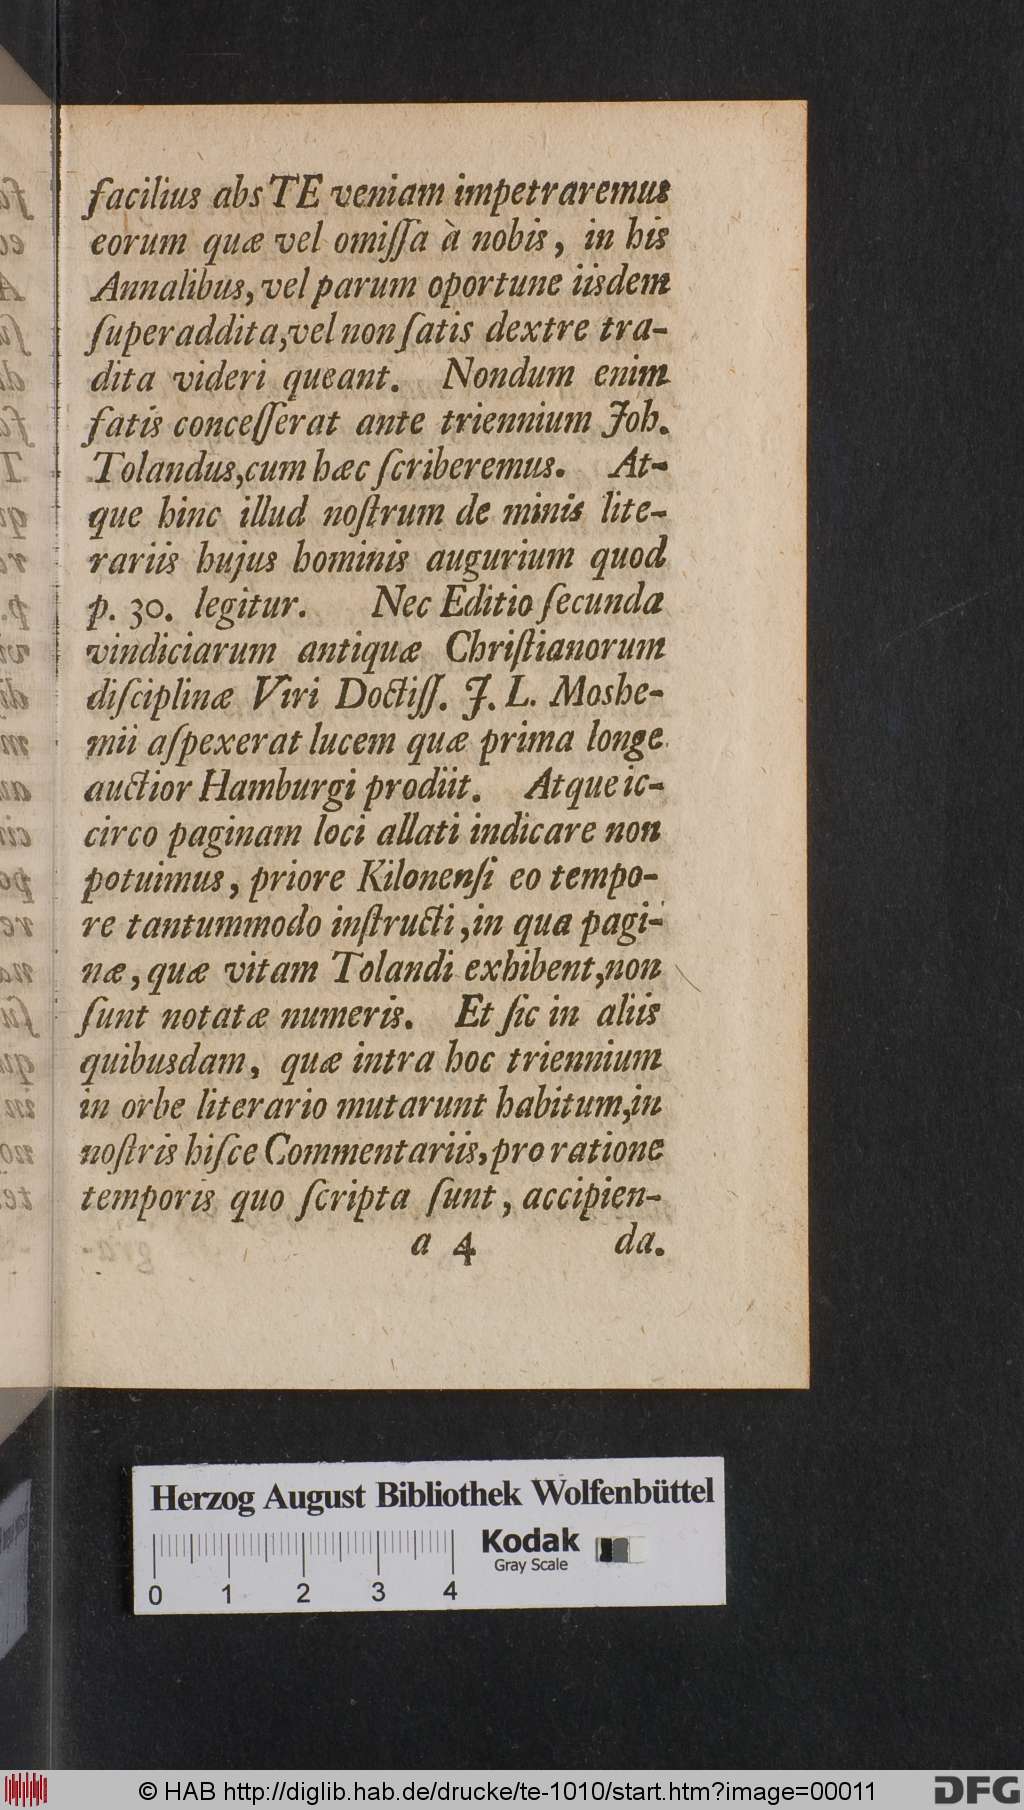 facilius abs TE veniam impetraremus
eorum quæ vel omiſſa à nobis, in his
Annalibus, vel parum oportune iisdem
ſuperaddita, vel non ſatis dextre tra-
dita videri queant. Nondum enim
fatis conceſſerat ante triennium Joh.
Tolandus, cum hæc ſcriberemus. At-
que hinc illud noſtrum de minis lite-
rariis hujus hominis augurium quod
p. 30. legitur. Nec Editio ſecunda
vindiciarum antiquæ Chriſtianorum
diſciplinæ Viri Doctiſſ. J. L. Moshe-
mii aſpexerat lucem quæ prima longe
auctior Hamburgi prodiit. Atque ic-
circo paginam loci allati indicare non
potuimus, priore Kilonenſi eo tempo-
re tantummodo inſtructi, in qua pagi-
næ, quæ vitam Tolandi exhibent, non
ſunt notatæ numeris. Et ſic in aliis
quibusdam, quæ intra hoc triennium
in orbe literario mutarunt habitum, in
noſtris hiſce Commentariis, pro ratione
temporis quo ſcripta ſunt, accipien-
a 4 da.
Herzog August Bibliothek Wolfenbüttel
Kodak
Gray Scale
0 1 2 3 4
© HAB http://diglib.hab.de/drucke/te-1010/start.htm?image=00011
DFG